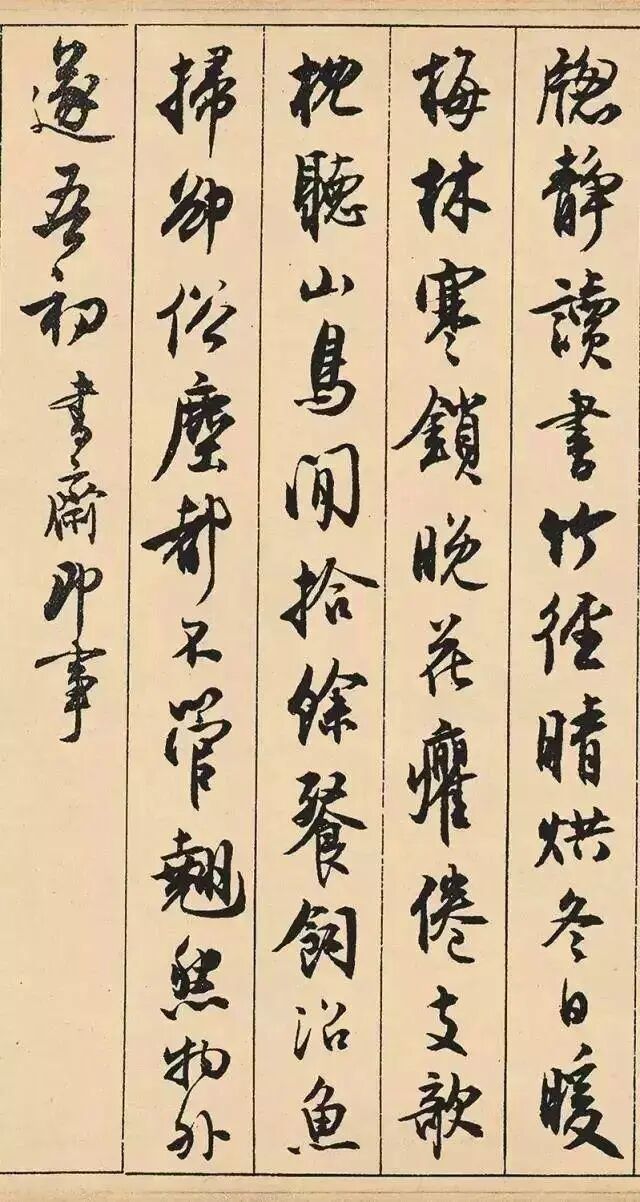 牕静讀書竹徑晴烘冬日暖
梅林寒鎖晚花癯倦支欹
枕聽山鳥閒拾餘餐飼沼魚
掃卻俗塵都不管翹然物外
遂吾初 書齋即事